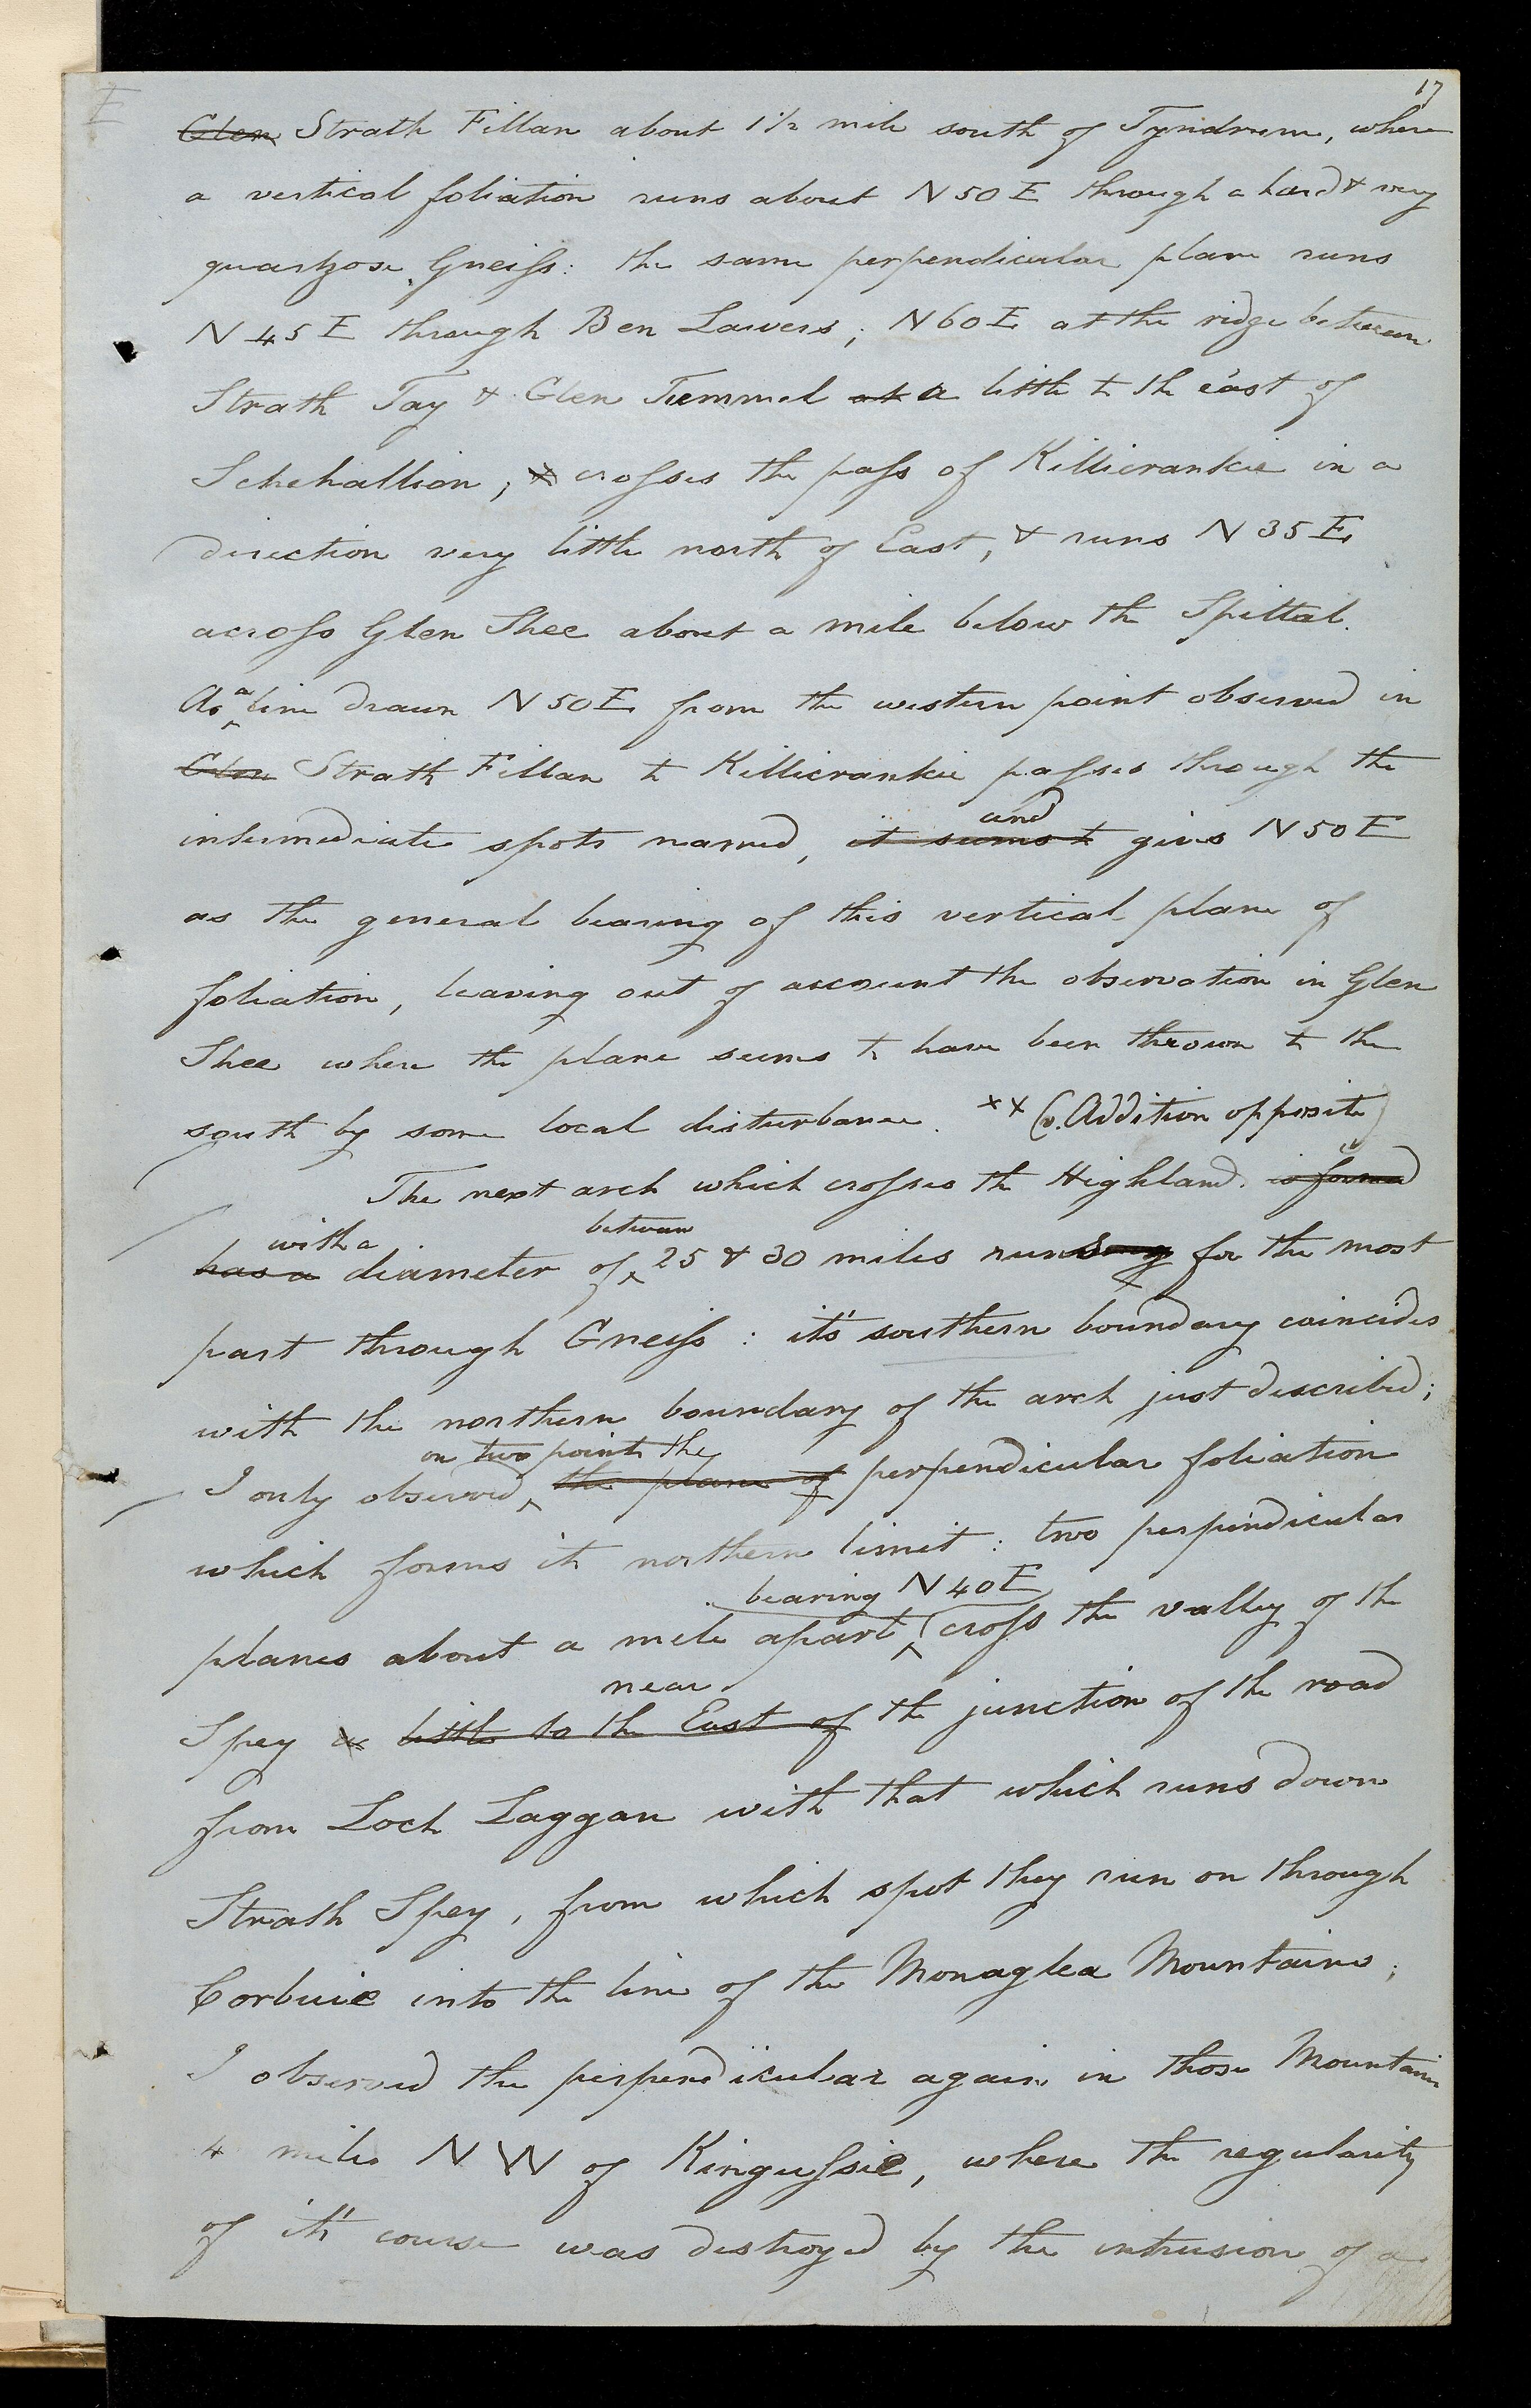 17
E
Glen Strath Fillan about 1 1/2 mile south of Tyndrum, where
a vertical foliation runs about N 50 E through a hard & very
quartzose Gneiss: the same perpendicular plane runs
N 45 E through Ben Lawers; N 60 E at the ridge between
Strath Tay & Glen Tummel at a little to the east of
Schehallion; & crosses the pass of Killicrankie in a
direction very little north of East, & runs N 35 E
across Glen Shee about a mile below the Spittal.
As a line drawn N 50 E from the western point observed in
Glen Strath Fillan to Killicrankie passes through the
and
intermediate spots named, it seems to gives N 50 E
as the general bearing of this vertical plane of
foliation, leaving out of account the observation in Glen
Shee where the plane seems to have been thrown to the
south by some local disturbance. ×× (v. Addition opposite)
The next arch which crosses the Highland. is formed
with a between
has a diameter of 25 & 30 miles runs for the most
part through Gneiss: it's southern boundary coincides
with the northern boundary of the arch just described;
on two point the
I only observed the plane of perpendicular foliation
which forms its northern limit: two perpendicular
bearing N 40 E
planes about a mile apart cross the valley of the
near
Spey a little to the East of the junction of the road
from Loch Laggan with that which runs down
Strath Spey, from which spot they run on through
Corbuie into the line of the Monaglea Mountains;
I observed the perpendicular again in those Mountains
4 miles N W of Kingussie, where the regularity
of it's course was destroyed by the intrusion of a